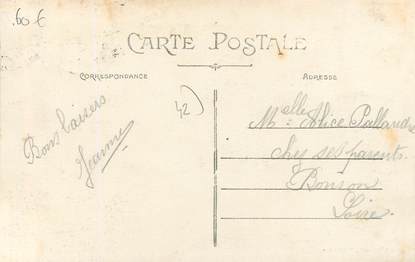 60 €
CARTE POSTALE
CORRESPONDANCE
ADRESSE
42
Bons baisers
Jeanne
Melle Alice Pallandr
chez ses parents
Bonson
Loire